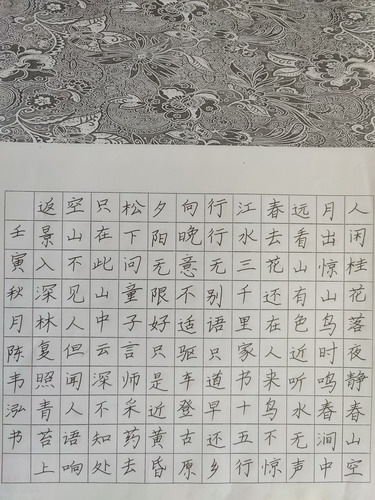 人闲桂花落夜静春山空
月出惊山鸟时鸣春涧中
远看山有色近听水无声
春去花还在人来鸟不惊
江水三千里家书十五行
行行无别语只道早还乡
向晚意不适驱车登古原
夕阳无限好只是近黄昏
松下问童子言师采药去
只在此山中云深不知处
空山不见人但闻人语响
返景入深林复照青苔上
壬寅秋月陈韦泓书